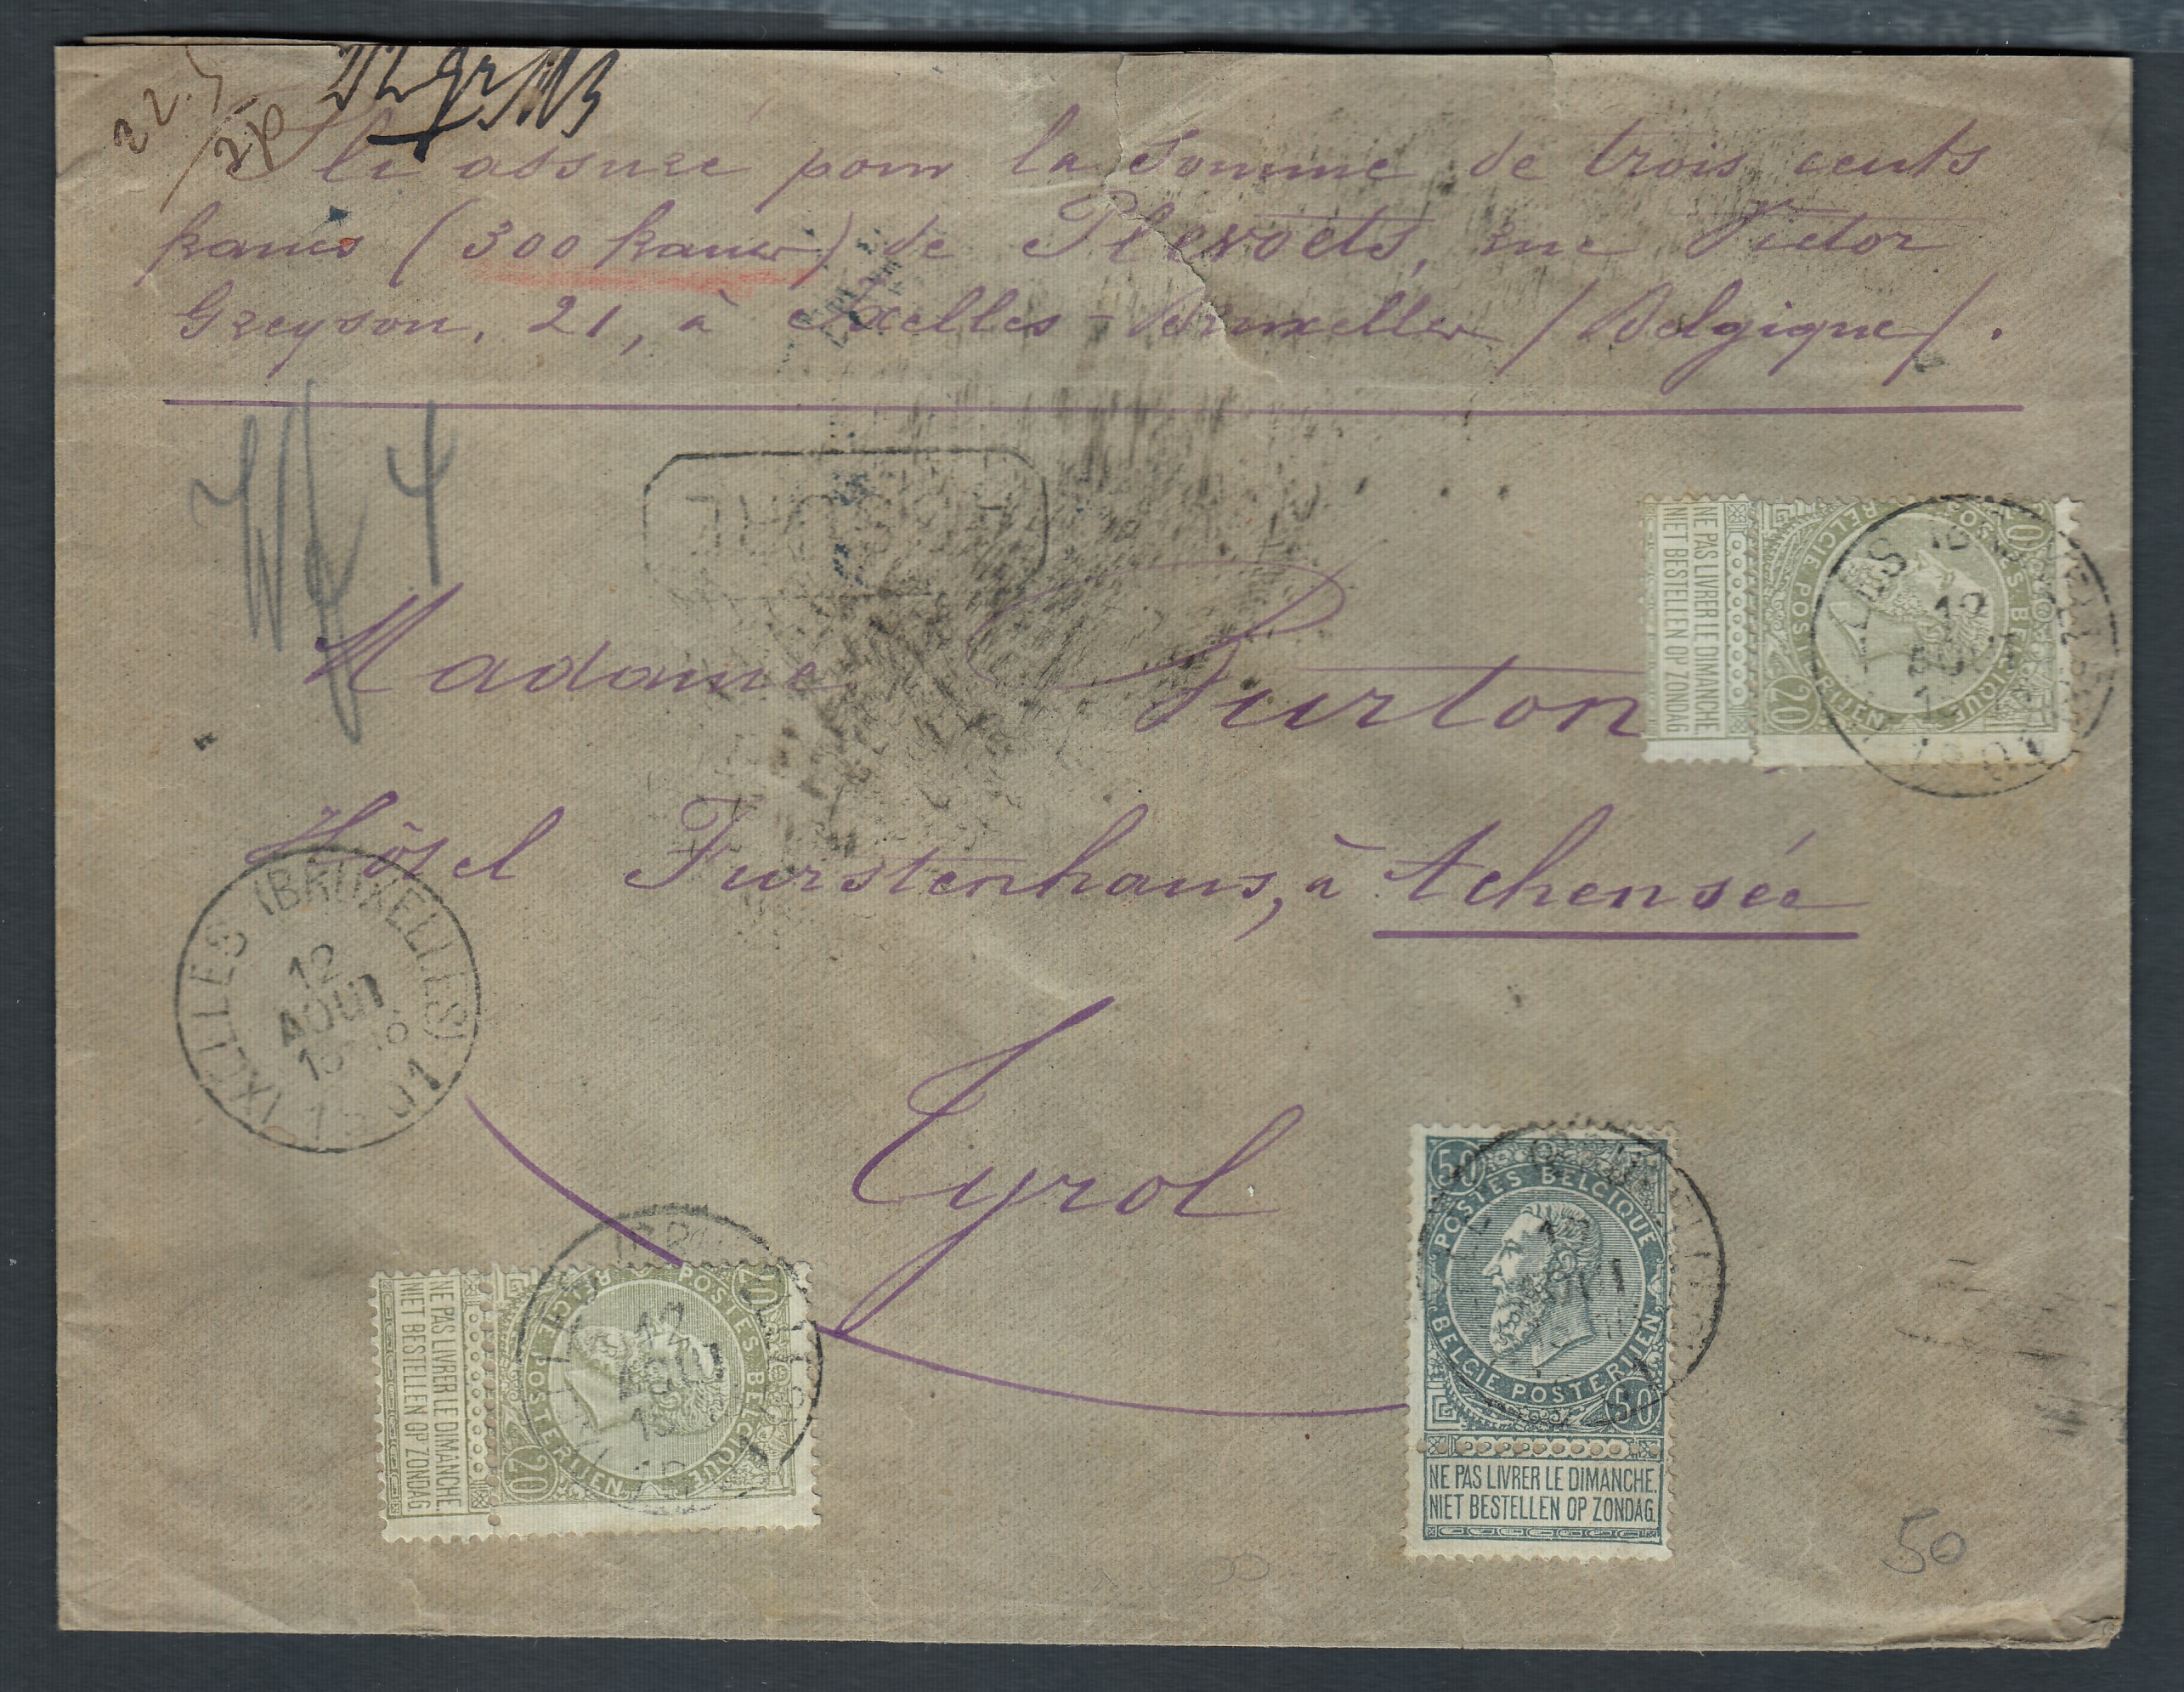 22.5
Pli assuré pour la somme de trois cents
francs (300 francs) de Plevoets, rue Victor
Greyson, 21, à Ixelles-Bruxelles (Belgique).
4
NE PAS LIVRER LE DIMANCHE.
NIET BESTELLEN OP ZONDAG
POSTES BELGIQUE
BELGIE POSTERIJEN
20
IXELLES (BRUXELLES)
12
AOUT
Madame Purton
Hôtel Furstenhaus, à Achensée
IXELLES (BRUXELLES)
12
AOUT
1901
Tyrol
NE PAS LIVRER LE DIMANCHE.
NIET BESTELLEN OP ZONDAG
20 POSTES BELGIQUE
BELGIE POSTERIJEN 20
12
AOUT
50 POSTES BELGIQUE
BELGIE POSTERIJEN 50
NE PAS LIVRER LE DIMANCHE.
NIET BESTELLEN OP ZONDAG.
50